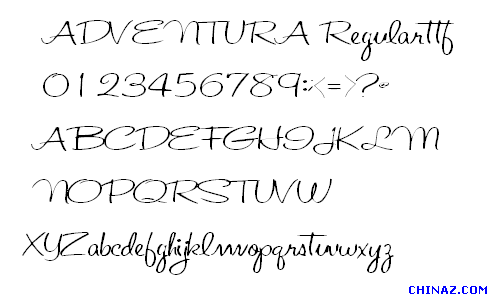 ADVENTURA Regularttf
0123456789:;<=>?@
ABCDEFGHIJKLM
NOPQRSTUVW
XYZabcdefghijklmnopqrstuvwxyz
CHINAZ.COM